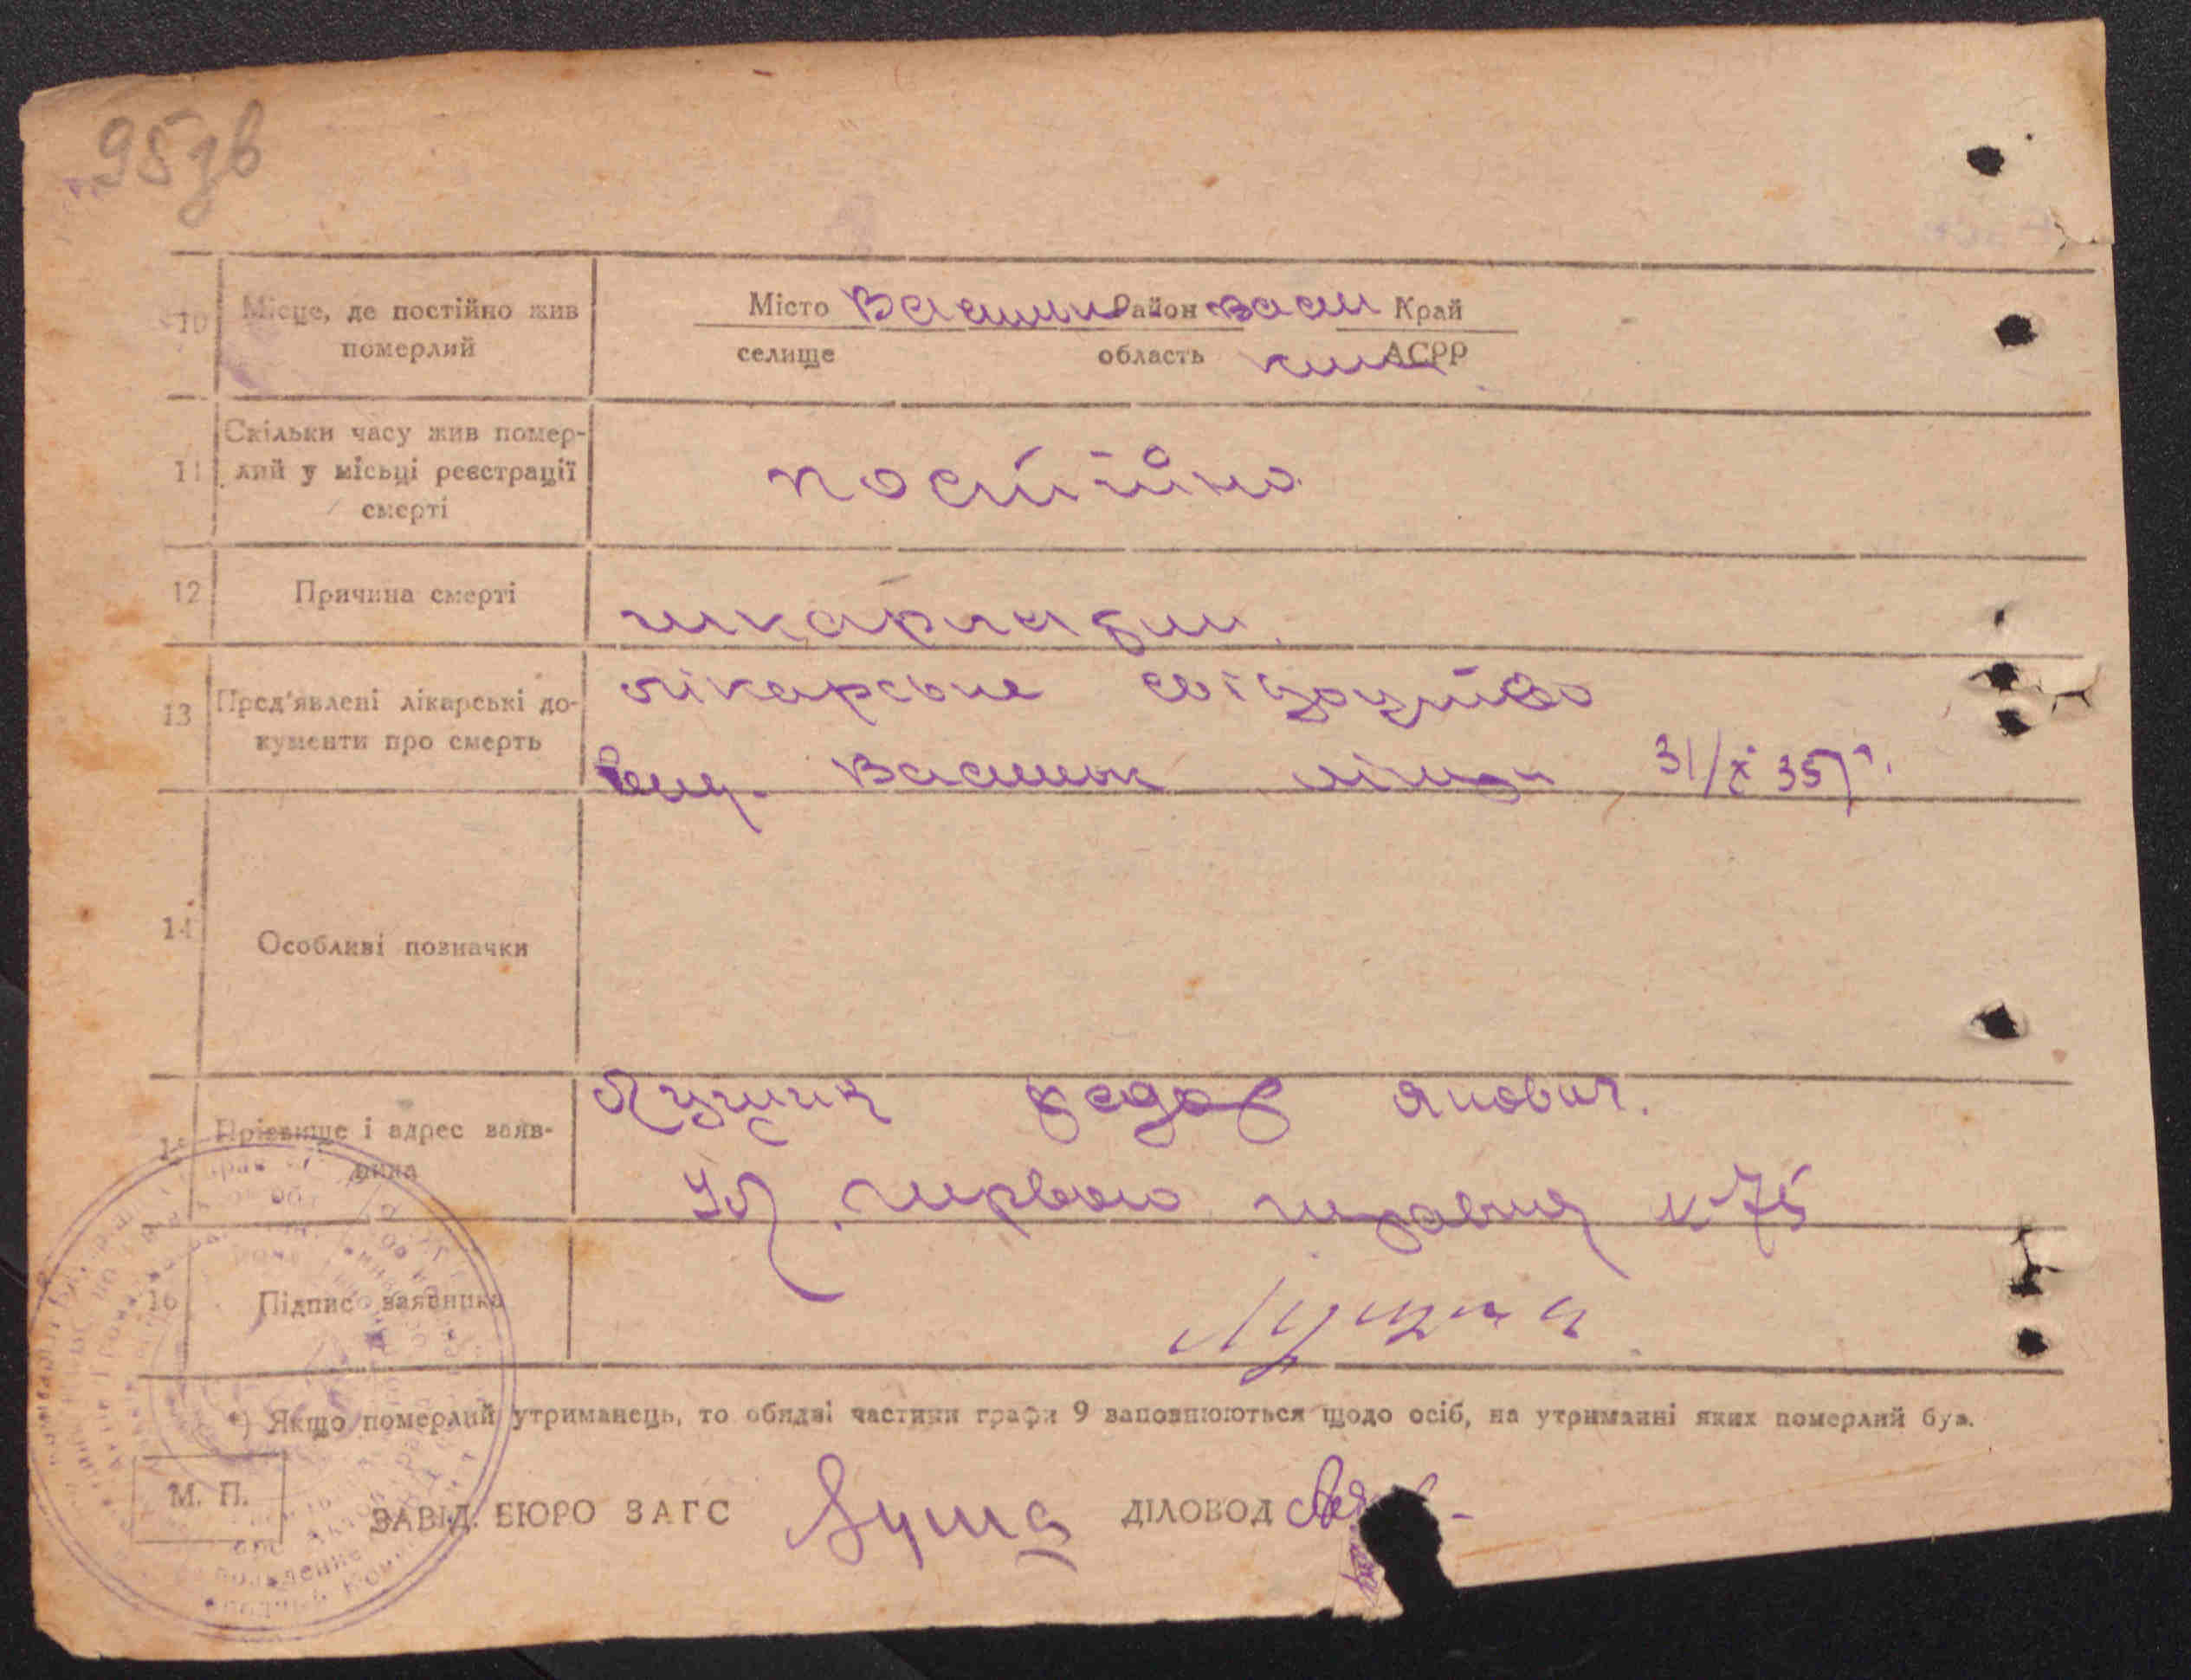 95зв
10 Місце, де постійно жив померлий
Місто Васильк Район Васил Край
селище область Київ АСРР
11 Скільки часу жив помер-
лий у місьці реєстрації
смерті
постійно
12 Причина смерті
шкарлатин
13 Пред'явлені лікарські до-
кументи про смерть
лікарське свідоцтво
вид. Васильк лікар 31/X 35 р.
14 Особливі позначки
15 Прізвище і адрес заяв-
ника
Луцик Федор Якович.
Ул. первого травня № 75
16 Підпис заявника
*) Якщо померлий утриманець, то обидві частини графи 9 заповнюються щодо осіб, на утриманні яких померлий був.
М. П.
ЗАВІД. БЮРО ЗАГС ДІЛОВОД